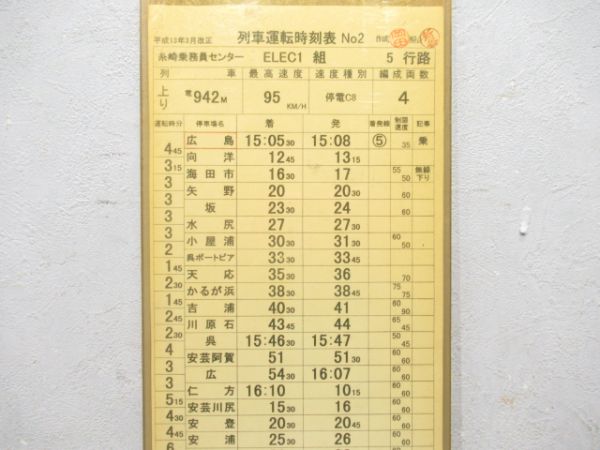 平成13年3月改正 列車運転時刻表 No2 作成
糸崎乗務員センター ELEC1 組 5 行路
列 車 最高速度 速度種別 編成両数
上り 電942M 95KM/H 停電C8 4
運転時分 停車場名 着 発 着発線 制限速度 記事
広島 15:0530 15:08 ⑤ 35 乗
445 向洋 1245 1315
315 海田市 1630 17 55 50 無線下り
3 矢野 20 2030 60
3 坂 2330 24 60
3 水尻 27 2730
3 小屋浦 3030 3130 60 50
2 呉ポートピア 3330 3345
145 天応 3530 36 70
230 かるが浜 3830 3845 75 75
215 吉浦 4030 41 60 90
245 川原石 4345 44 65 45
230 呉 15:4630 15:47 60 60
4 安芸阿賀 51 5130 60 60
3 広 5430 16:07 60 60
3 仁方 16:10 1015 60 60
515 安芸川尻 1530 16 60 50
430 安登 2030 2045 60 60
445 安浦 2530 26 60 60
6